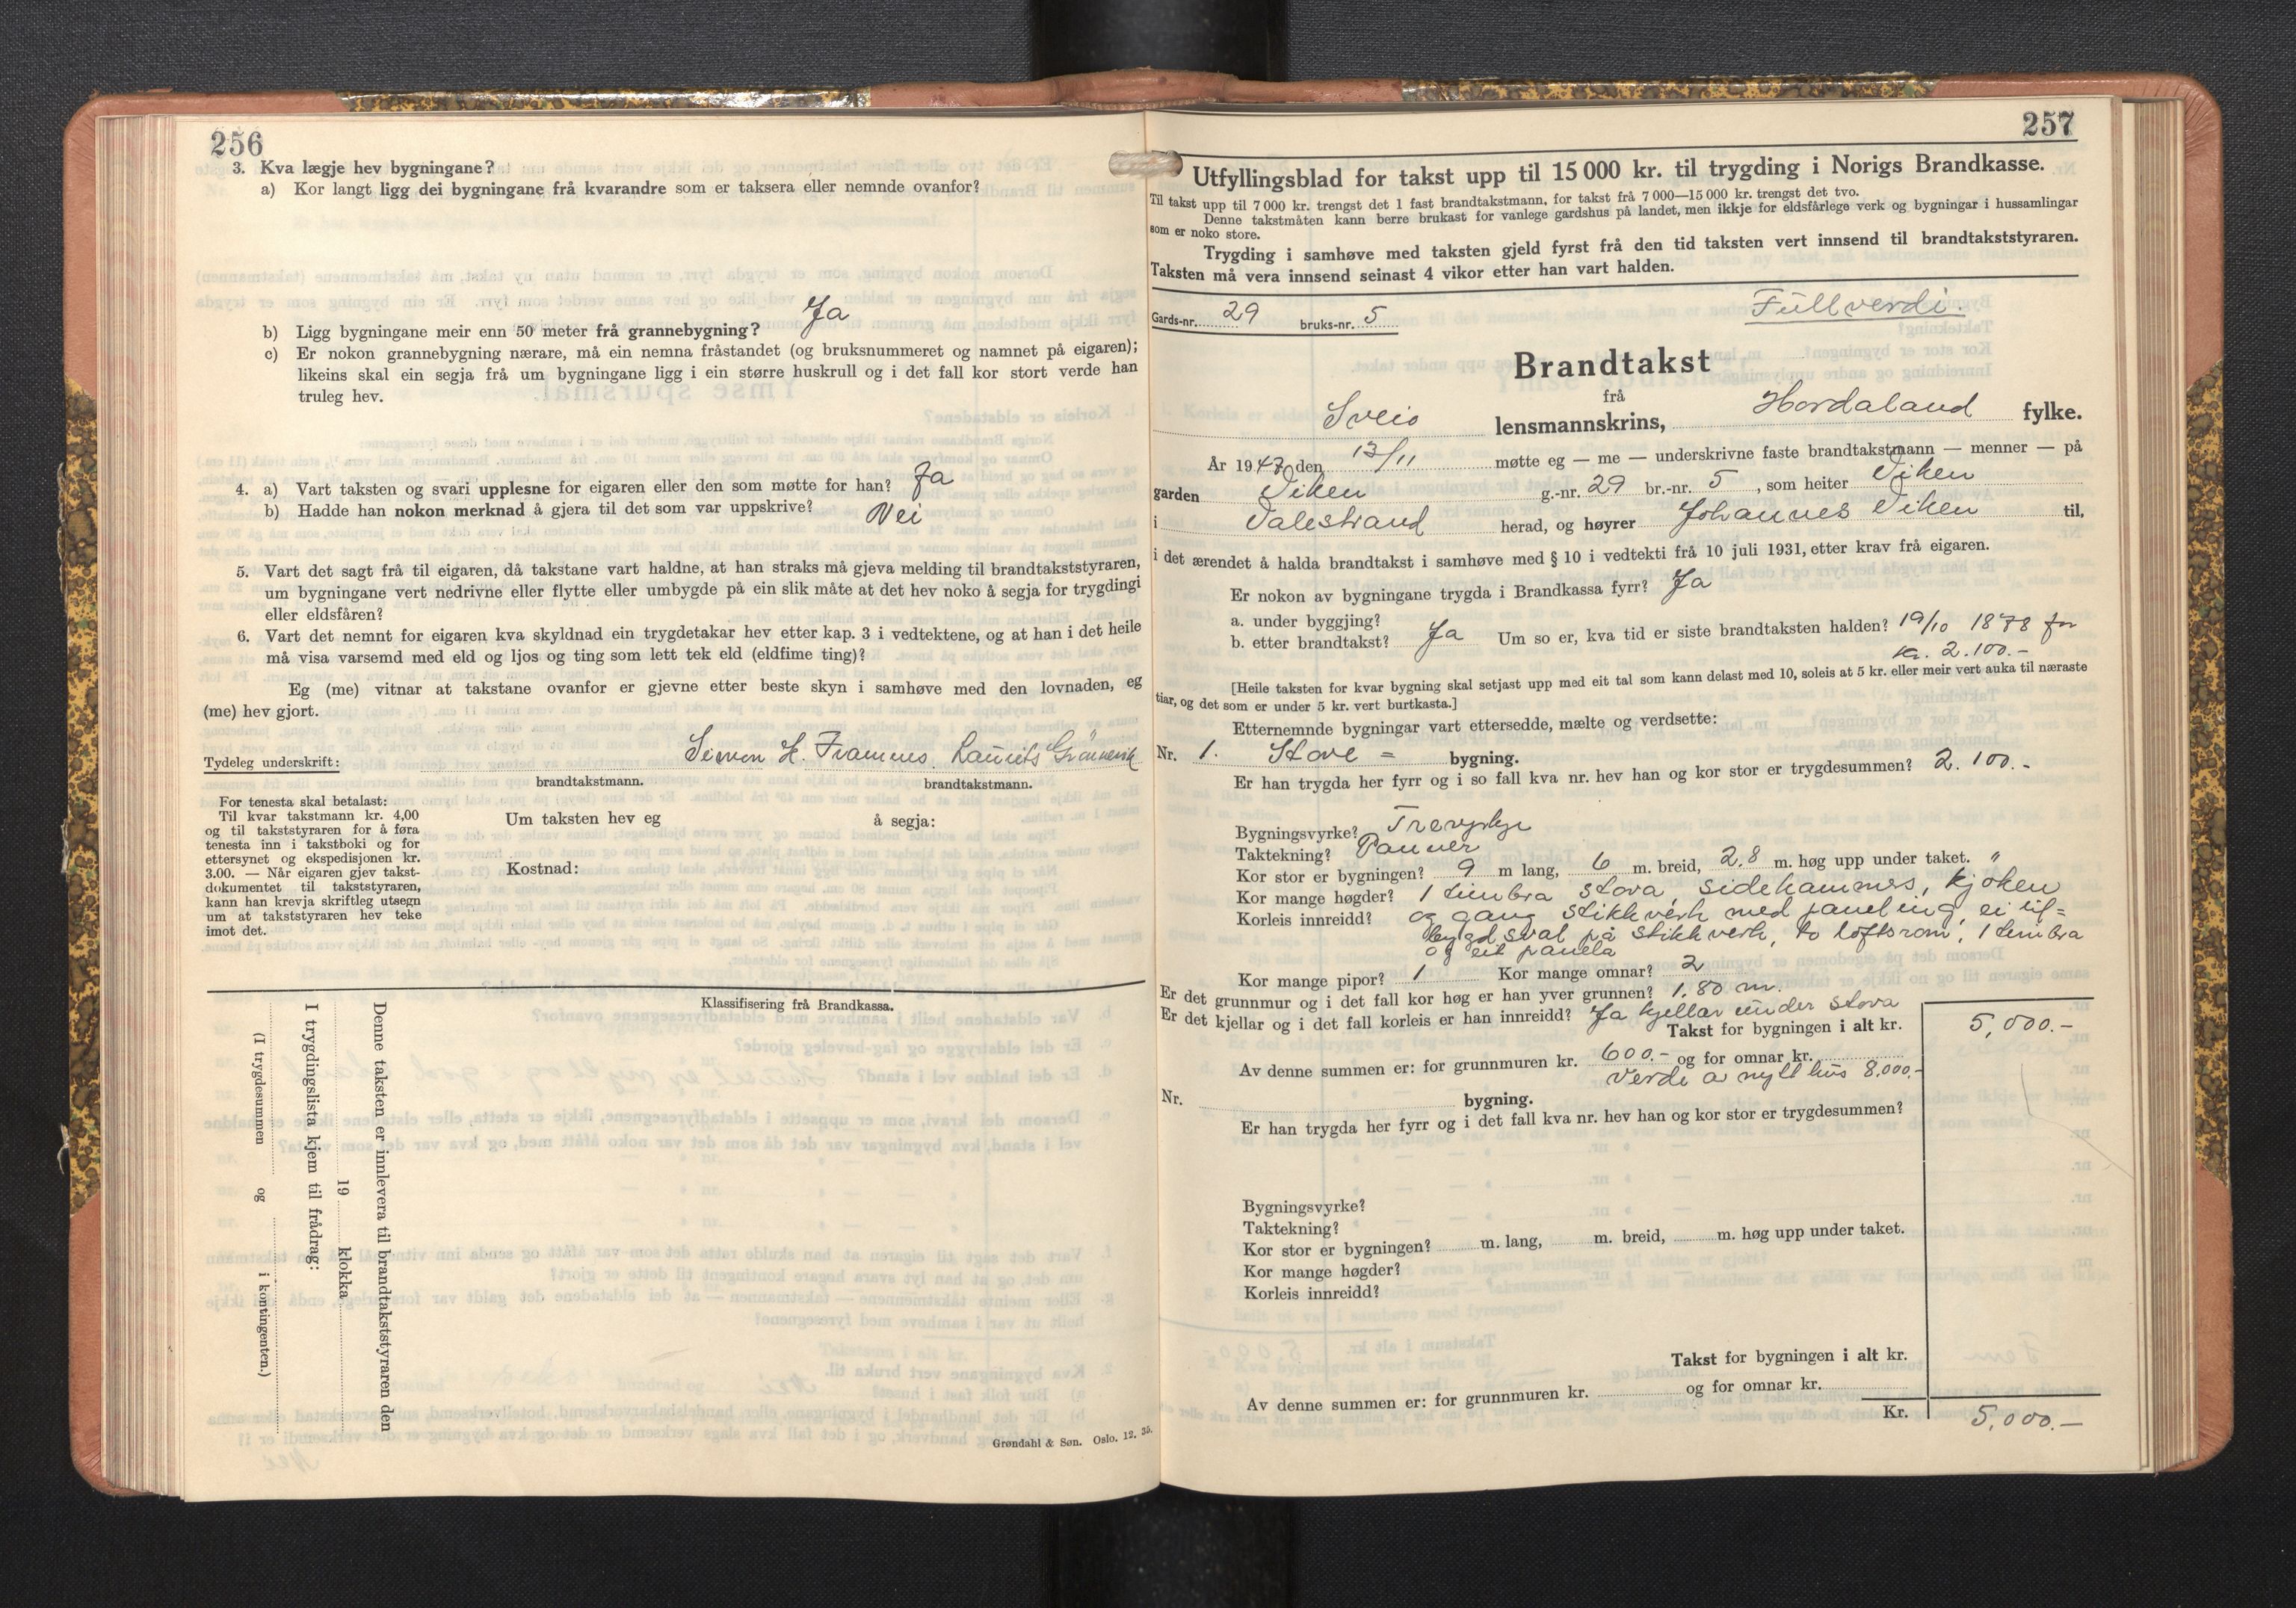 256
3. Kva lægje hev bygningane?
a) Kor langt ligg dei bygningane frå kvarandre som er taksera eller nemnde ovanfor?
b) Ligg bygningane meir enn 50 meter frå grannebygning? Ja
c) Er nokon grannebygning nærare, må ein nemna fråstandet (og bruksnummeret og namnet på eigaren);
likeins skal ein segja frå um bygningane ligg i ein større huskrull og i det fall kor stort verde han
truleg hev.
4. a) Vart taksten og svari upplesne for eigaren eller den som møtte for han? Ja
b) Hadde han nokon merknad å gjera til det som var uppskrive? Nei
5. Vart det sagt frå til eigaren, då takstane vart haldne, at han straks må gjeva melding til brandtakststyraren,
um bygningane vert nedrivne eller flytte eller umbygde på ein slik måte at det hev noko å segja for trygdingi
eller eldsfåren?
6. Vart det nemnt for eigaren kva skyldnad ein trygdetakar hev etter kap. 3 i vedtektene, og at han i det heile
må visa varsemd med eld og ljos og ting som lett tek eld (eldfime ting)?
Eg (me) vitnar at takstane ovanfor er gjevne etter beste skyn i samhøve med den lovnaden, eg
(me) hev gjort.
Tydeleg underskrift: Simon H. Framnes. Laurits
brandtakstmann. brandtakstmann.
For tenesta skal betalast:
Til kvar takstmann kr. 4,00
og til takststyraren for å føra
tenesta inn i takstboki og for
ettersynet og ekspedisjonen kr.
3.00. — Når eigaren gjev takst-
dokumentet til takststyraren,
kann han krevja skriftleg utsegn
um at takststyraren hev teke
imot det.
Um taksten hev eg å segja:
Kostnad:
Klassifisering frå Brandkassa.
Denne taksten er innlevera til brandtakststyraren den
19 klokka
I trygdingslista kjem til frådrag:
(I trygdesummen og i kontingenten.)
Grøndahl & Søn. Oslo. 12. 35.
257
Utfyllingsblad for takst upp til 15 000 kr. til trygding i Norigs Brandkasse.
Til takst upp til 7 000 kr. trengst det 1 fast brandtakstmann, for takst frå 7 000—15 000 kr. trengst det tvo.
Denne takstmåten kann berre brukast for vanlege gardshus på landet, men ikkje for eldsfårlege verk og bygningar i hussamlingar
som er noko store.
Trygding i samhøve med taksten gjeld fyrst frå den tid taksten vert innsend til brandtakststyraren.
Taksten må vera innsend seinast 4 vikor etter han vart halden.
Gards-nr. 29 bruks-nr. 5 Fullverdi.
Brandtakst
frå
Sveio lensmannskrins, Hordaland fylke.
År 1943 den 13/11 møtte eg — me — underskrivne faste brandtakstmann — menner — på
garden Viken g.-nr. 29 br.-nr. 5, som heiter Viken
i Valestrand herad, og høyrer Johannes Viken til,
i det ærendet å halda brandtakst i samhøve med § 10 i vedtekti frå 10 juli 1931, etter krav frå eigaren.
Er nokon av bygningane trygda i Brandkassa fyrr? Ja
a. under byggjing?
b. etter brandtakst? Ja Um so er, kva tid er siste brandtaksten halden? 19/10 1878 for
kr. 2.100.-
[Heile taksten for kvar bygning skal setjast upp med eit tal som kann delast med 10, soleis at 5 kr. eller meir vert auka til næraste
tiar, og det som er under 5 kr. vert burtkasta.]
Etternemnde bygningar vart ettersedde, mælte og verdsette:
Nr. 1. Stove = bygning.
Er han trygda her fyrr og i so fall kva nr. hev han og kor stor er trygdesummen? 2.100.-
Bygningsvyrke? Trevyrkje
Taktekning? Panner
Kor stor er bygningen? 9 m lang, 6 m. breid, 2.8 m. høg upp under taket.
Kor mange høgder? 1 timbra stova, sidekammes, kjøken
Korleis innreidd? og gang stikkverk med paneling, ei til=
bygd sval på stikkverk, to loftsrom, 1 timbra
og eit panela
Kor mange pipor? 1 Kor mange omnar? 2
Er det grunnmur og i det fall kor høg er han yver grunnen? 1.80 m.
Er det kjellar og i det fall korleis er han innreidd? Ja kjellar under stova
Takst for bygningen i alt kr. 5,000.-
Av denne summen er: for grunnmuren kr. 600.- og for omnar kr.
Verdi av nytt hus 8.000.-
Nr. bygning.
Er han trygda her fyrr og i det fall kva nr. hev han og kor stor er trygdesummen?
Bygningsvyrke?
Taktekning?
Kor stor er bygningen? m. lang, m. breid, m. høg upp under taket.
Kor mange høgder?
Korleis innreidd?
Takst for bygningen i alt kr.
Av denne summen er: for grunnmuren kr. og for omnar kr.
Kr. 5,000.-